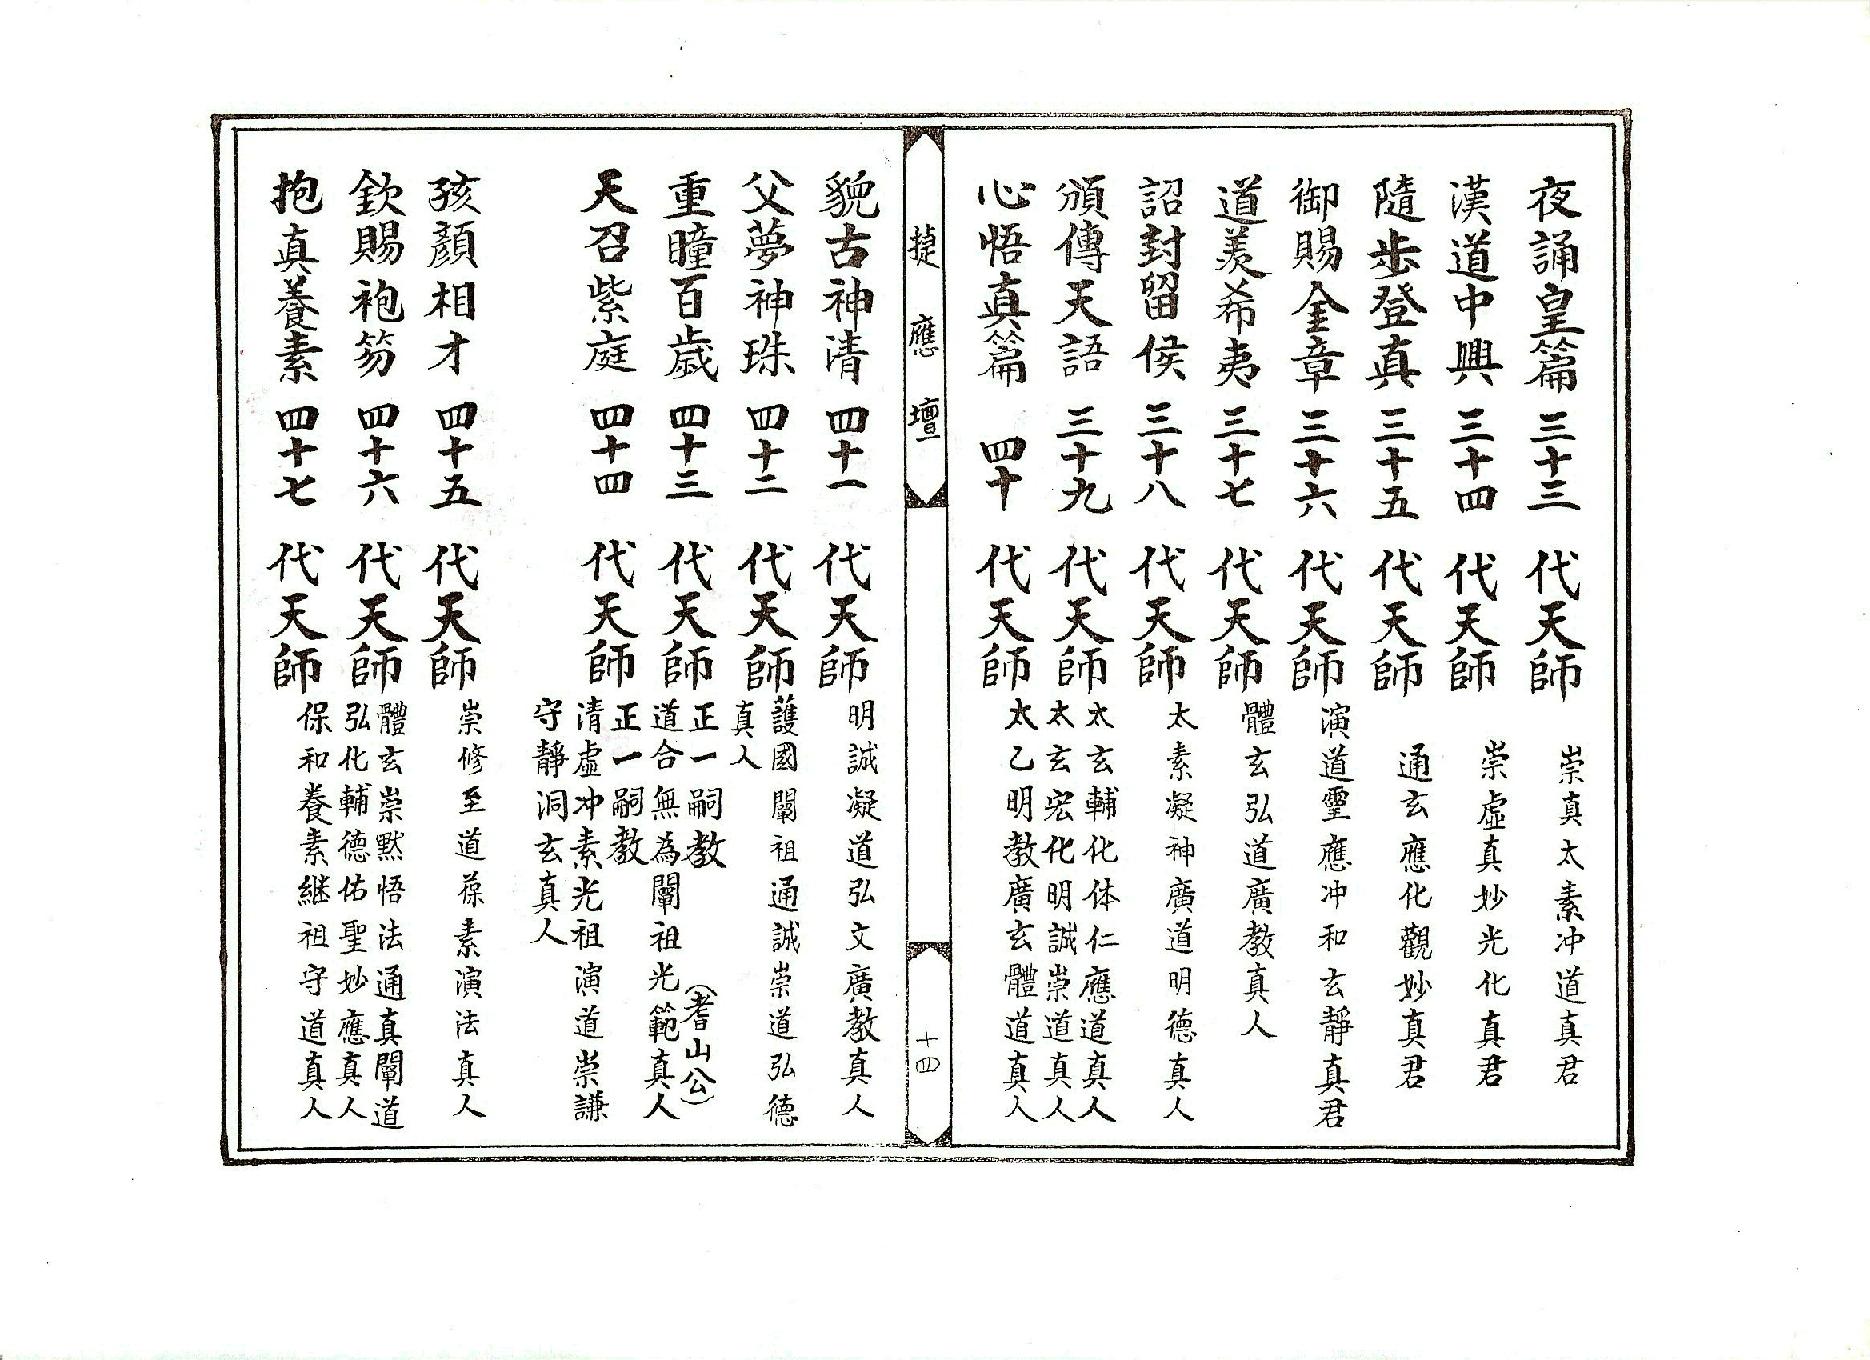 夜誦皇篇三十三代天師崇真太素冲道真君
漢道中興三十四代天師崇虛真妙光化真君
隨步登真三十五代天師通玄應化觀妙真君
御賜金章三十六代天師演道靈應冲和玄靜真君
道羨希夷三十七代天師體玄弘道廣教真人
詔封留侯三十八代天師太素凝神廣道明德真人
頒傳天語三十九代天師太玄輔化体仁應道真人
太玄宏化明誠崇道真人
心悟真篇四十代天師太乙明教廣玄體道真人
捷應壇
十四
貌古神清四十一代天師明誠凝道弘文廣教真人
父夢神珠四十二代天師護國闡祖通誠崇道弘德
真人
重瞳百歲四十三代天師正一嗣教
道合無為闡祖光範真人
(耆山公)
天召紫庭四十四代天師正一嗣教
清虛冲素光祖演道崇謙
守靜洞玄真人
孩顏相才四十五代天師崇修至道葆素演法真人
欽賜袍笏四十六代天師體玄崇默悟法通真闡道
弘化輔德佑聖妙應真人
抱真養素四十七代天師保和養素繼祖守道真人